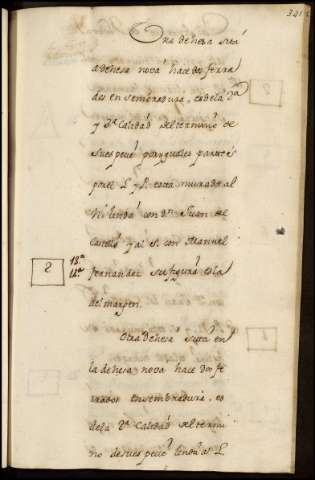 341
Otra dehesa sita
a dehesa nová hace dos ferra
dos en sembradura, es dela 1ª
y 2ª Calidad del termino de
su espeᵉ por yguales partes
por el L y P. esta murada al
N. linda con Dn Juan de
Castro y al S. con Manuel
fernandez su figura es la
del margen.
2
18ª
12ª
Otra dehesa sita en
la dehesa nova hace dos fe
rrados en sembradura, es
dela 2ª Calidad del termi
no de su espeᵉ linda al L